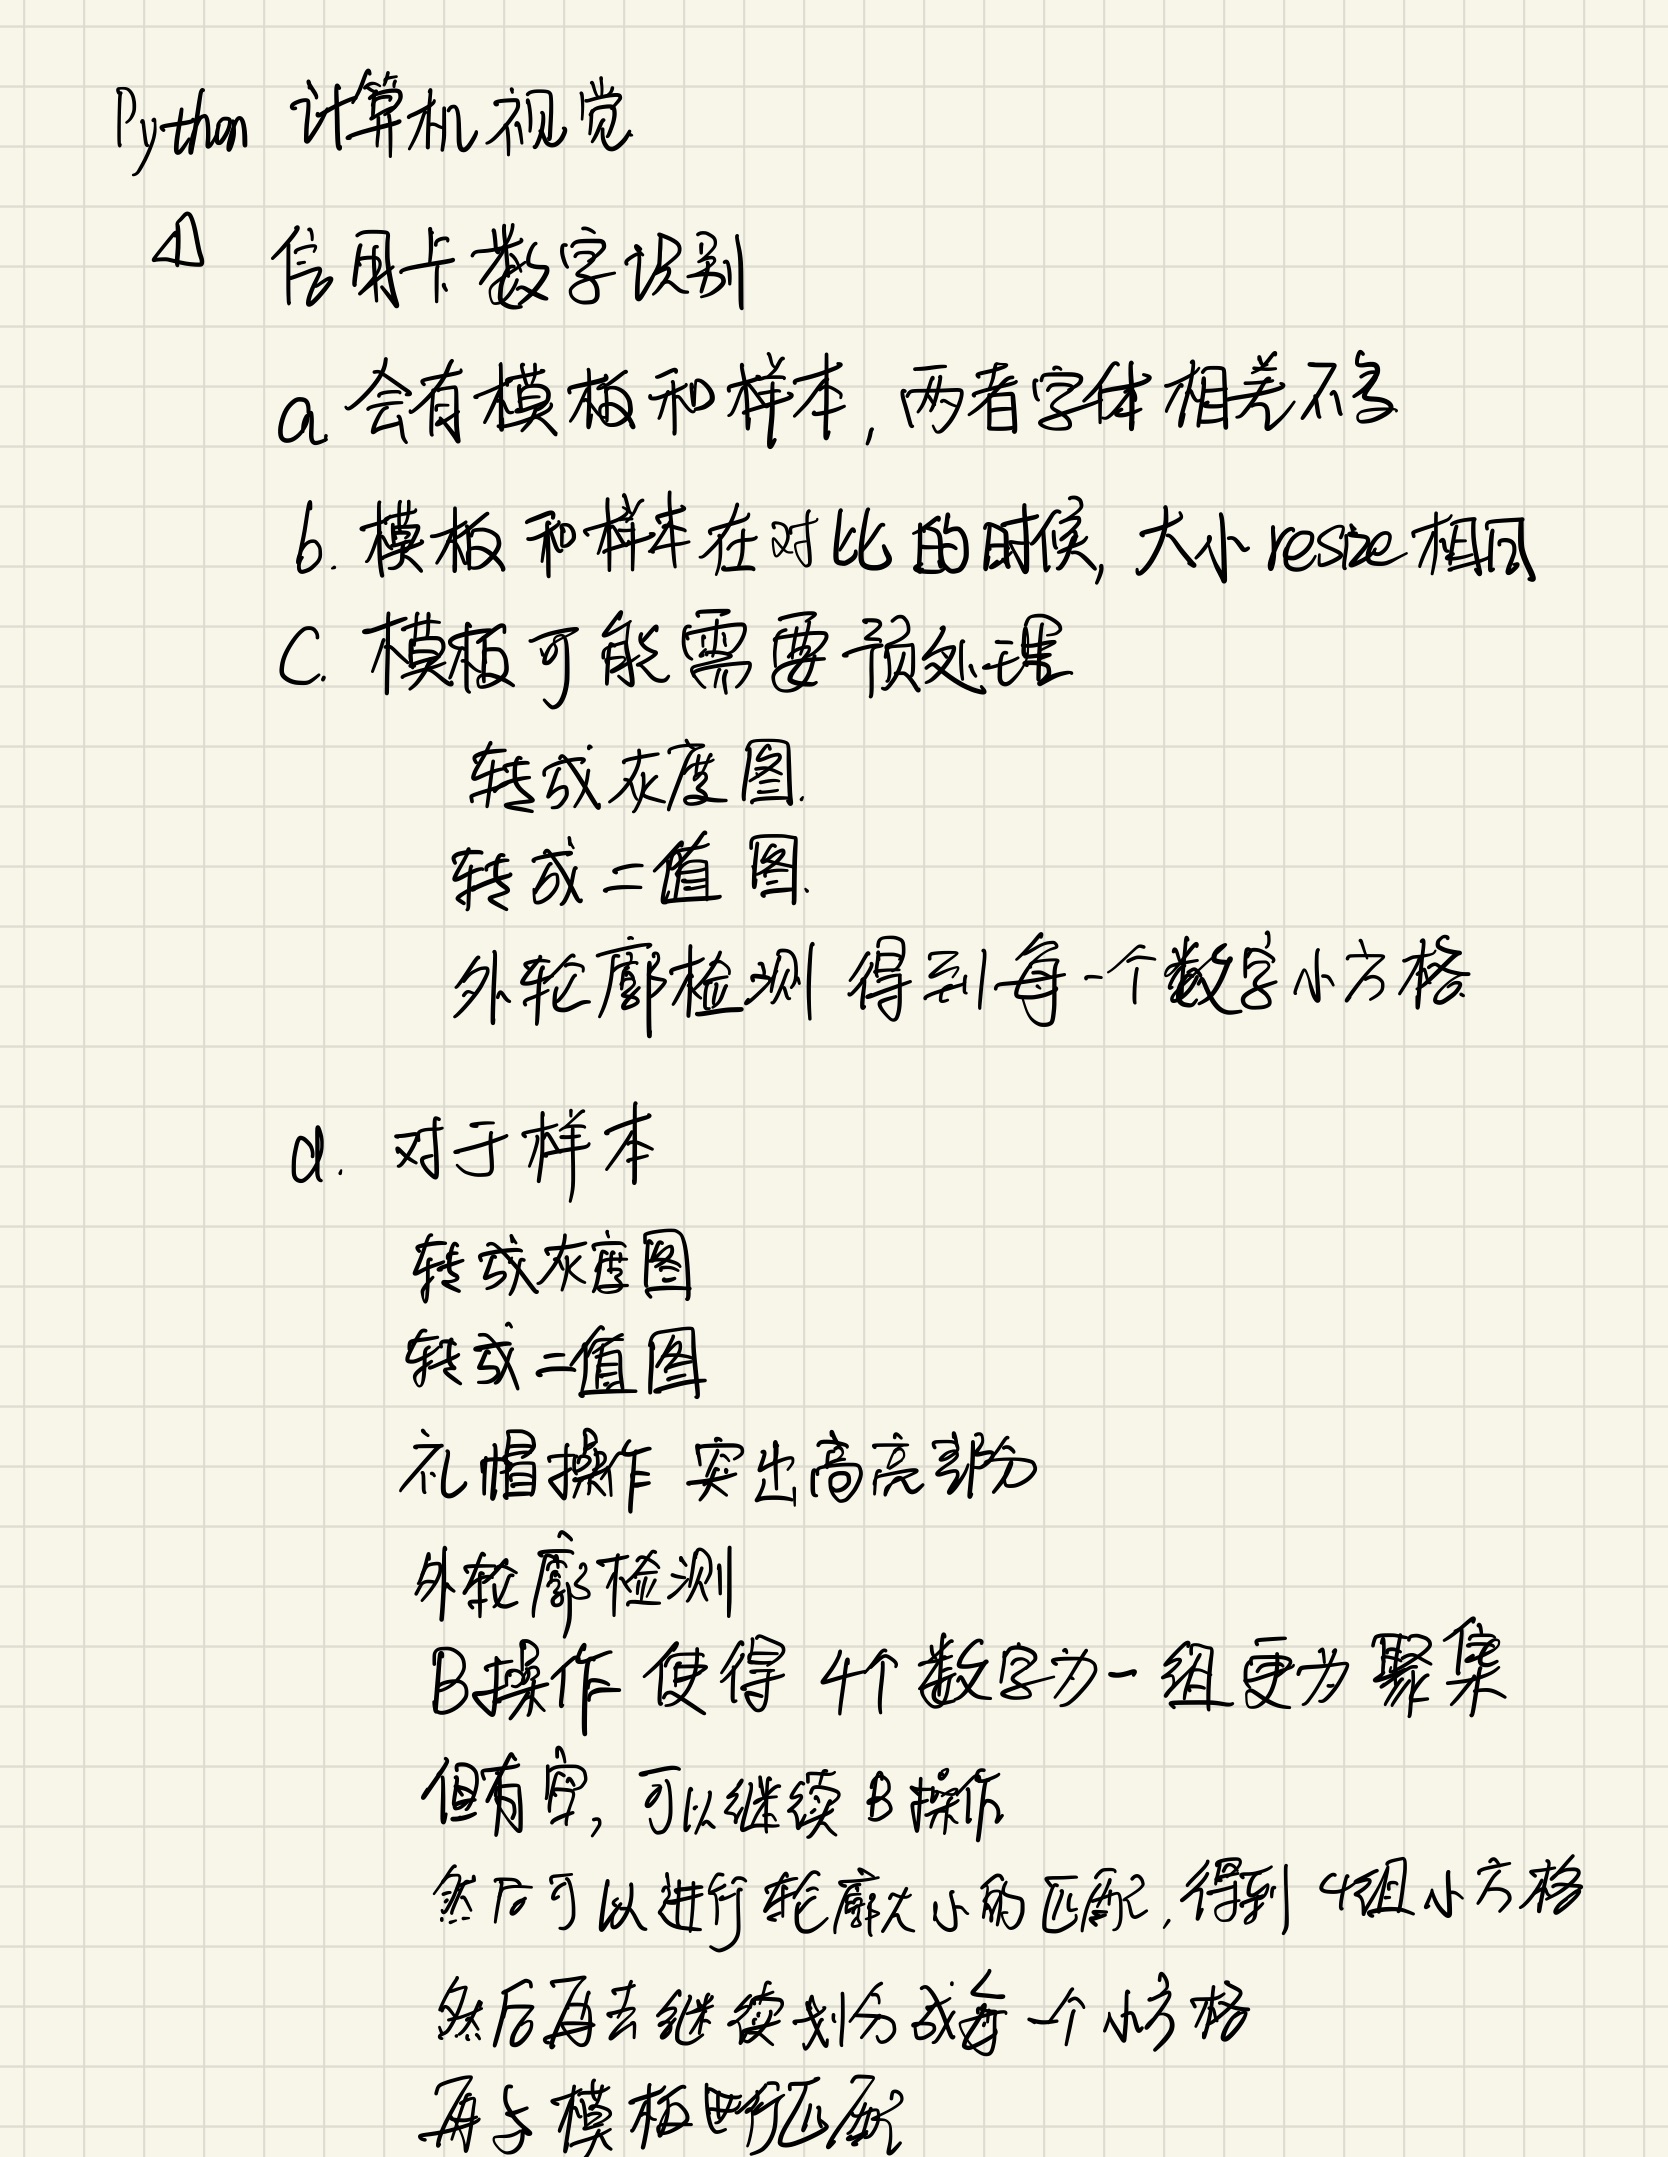 Python 计算机视觉
① 信用卡数字识别
a. 会有模板和样本,两者字体相差不多
b. 模板和样本在对比的时候,大小resize相同
c. 模板可能需要预处理
转成灰度图.
转成二值图.
外轮廓检测 得到每一个数字小方格
d. 对于样本
转成灰度图
转成二值图
礼帽操作 突出高亮部分
外轮廓检测
B操作 使得 4个数字为一组更为聚集
但有空,可以继续B操作
然后可以进行轮廓大小的匹配,得到4组小方格
然后再去继续划分成每一个小方格
再与模板进行匹配